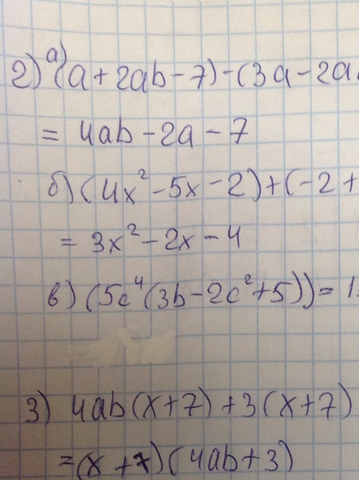 2) а) (a + 2ab - 7) - (3a - 2a
= 4ab - 2a - 7
б) (4x² - 5x - 2) + (-2 +
= 3x² - 2x - 4
в) (5c⁴(3b - 2c² + 5)) = 1
3) 4ab(x + 7) + 3(x + 7)
= (x + 7)(4ab + 3)